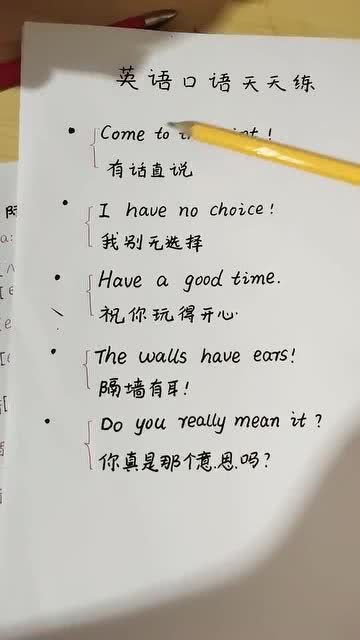 英语口语天天练
Come to !
有话直说
I have no choice!
我别无选择
Have a good time.
祝你玩得开心.
The walls have ears!
隔墙有耳!
Do you really mean it?
你真是那个意思吗?